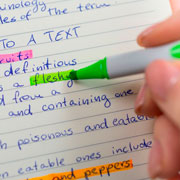 nology
les of the term.
TO A TEXT
fruits
definitions
s a fleshy
d from a
and containing one
h poisonous and eatabl
n eatable ones include
and peppers.